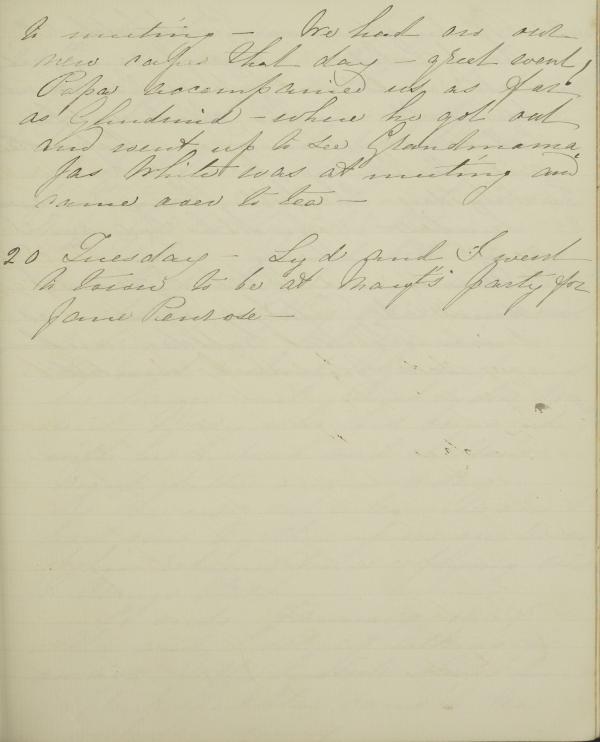 to meeting - We had on our
new capes that day - great event,
Papa accompanied us as far
as Glendmid - where he got out
and went up to see Grandmama.
Jas White was at meeting and
came over to tea -
20 Tuesday - Lyd and I went
to town to be at Margt's party for
Jane Penrose -